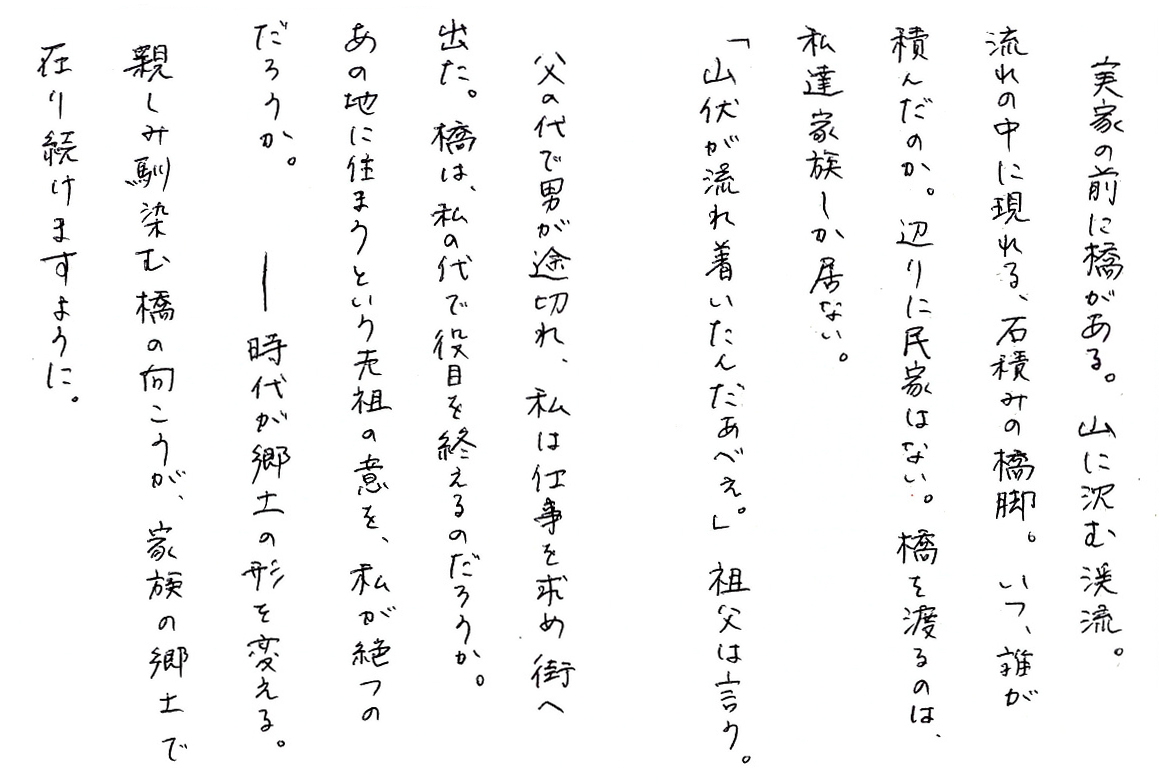 実家の前に橋がある。山に沈む渓流。
流れの中に現れる、石積みの橋脚。いつ、誰が
積んだのか。辺りに民家はない。橋を渡るのは、
私達家族しか居ない。
「山伏が流れ着いたんだあべぇ。」祖父は言う。
父の代で男が途切れ、私は仕事を求め街へ
出た。橋は、私の代で役目を終えるのだろうか。
あの地に住まうという先祖の意を、私が絶つの
だろうか。　　―時代が郷土の形を変える。
親しみ馴染む橋の向こうが、家族の郷土で
在り続けますように。